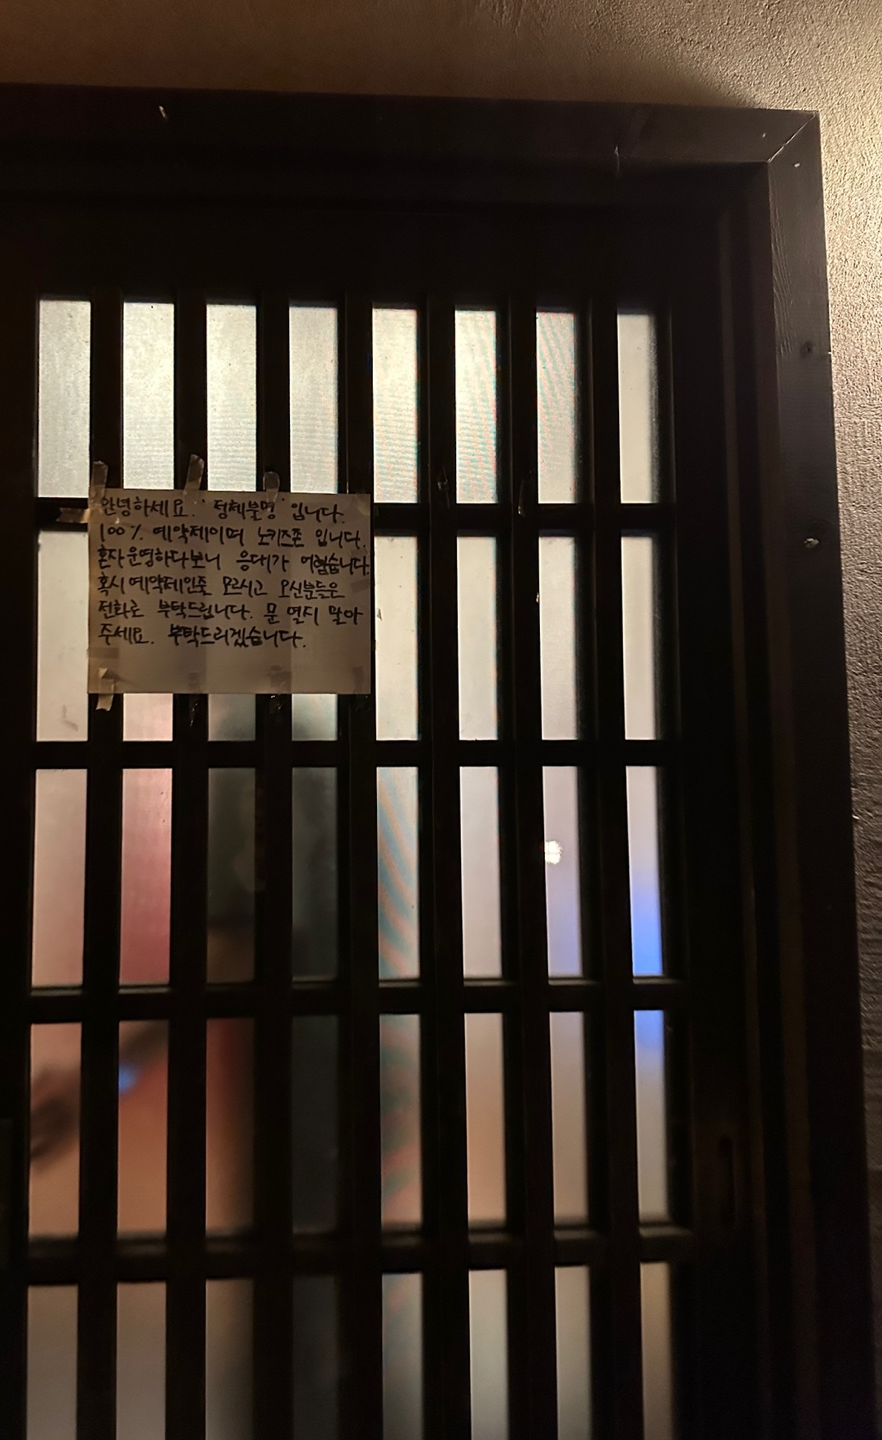 안녕하세요. '정체불명' 입니다.
100% 예약제이며 노키즈존 입니다.
혼자 운영하다보니 응대가 어렵습니다.
혹시 예약제인줄 모르시고 오신분들은
전화로 부탁드립니다. 문 열지 말아
주세요. 부탁드리겠습니다.